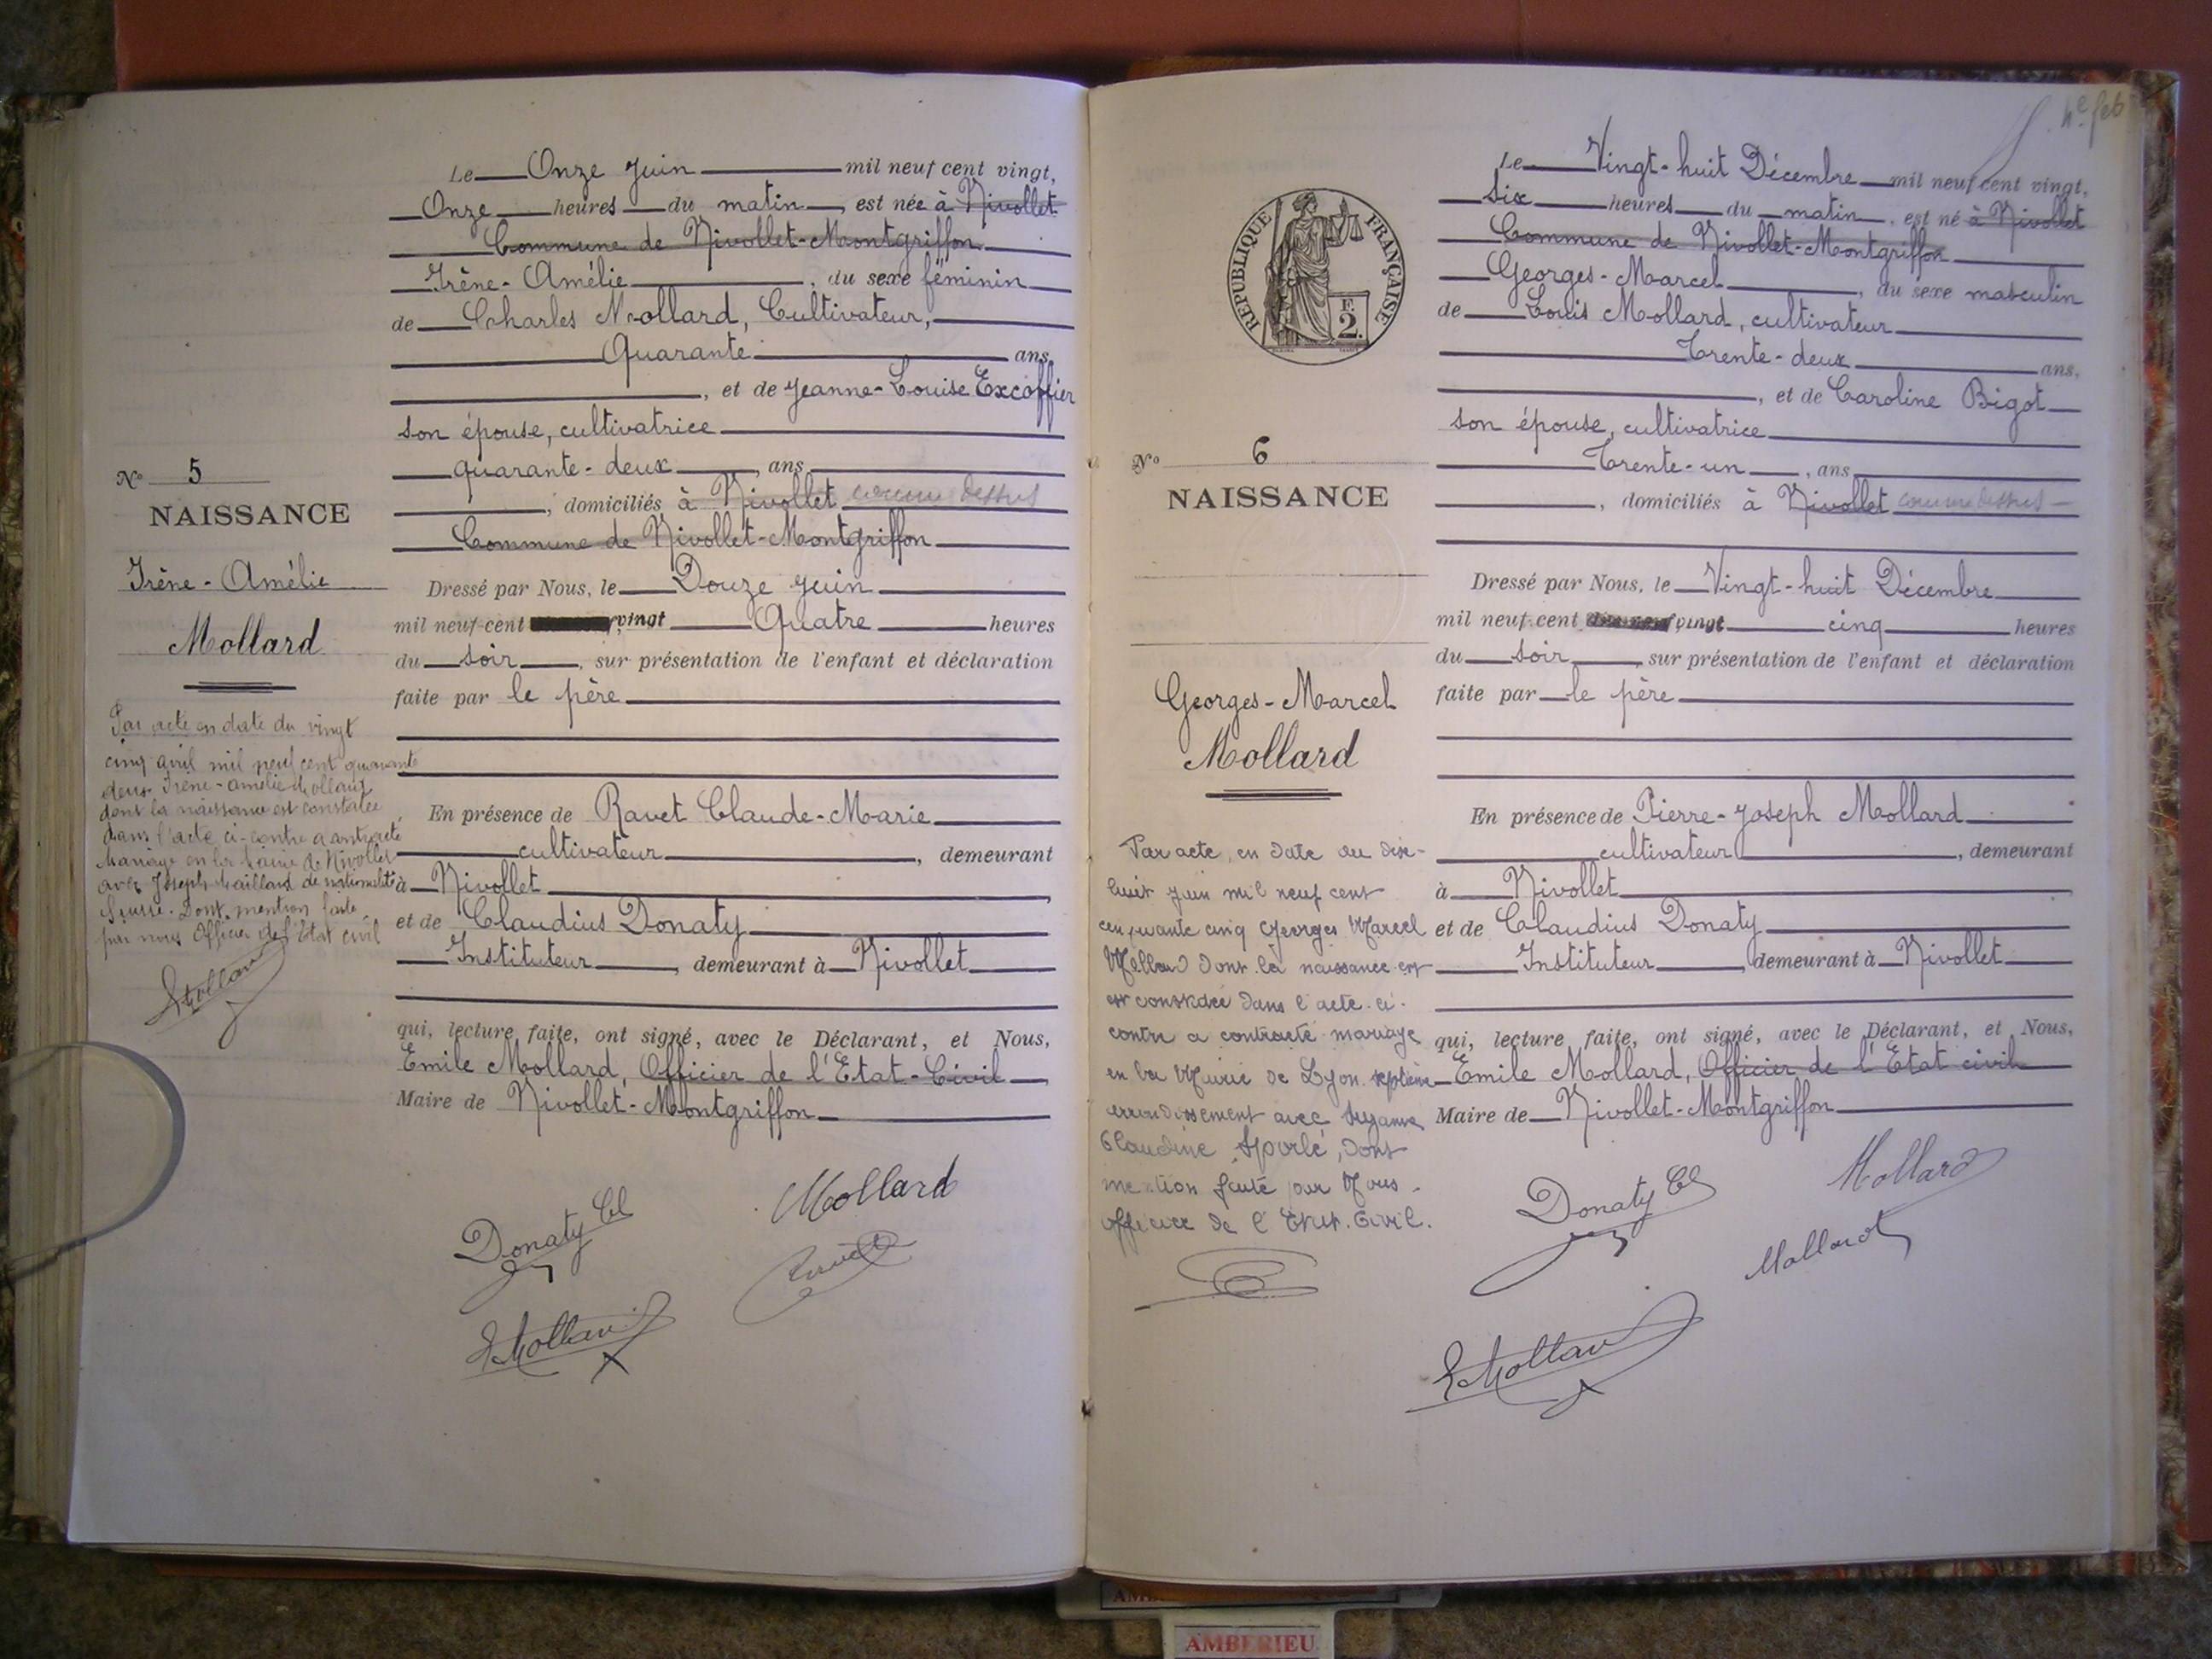 Le Onze Juin mil neuf cent vingt,
Onze heures du matin, est née à Nivollet
Commune de Nivollet-Montgriffon
Irène-Amélie, du sexe féminin
de Charles Mollard, Cultivateur,
Quarante ans,
, et de Jeanne-Louise Excoffier
son épouse, cultivatrice
quarante-deux, ans
, domiciliés à Nivollet comme dessus
Commune de Nivollet-Montgriffon
Dressé par Nous, le Douze Juin
mil neuf cent vingt Quatre heures
du soir, sur présentation de l'enfant et déclaration
faite par le père
En présence de Ravet Claude-Marie
cultivateur, demeurant
à Nivollet
et de Claudius Donaty
Instituteur, demeurant à Nivollet
qui, lecture faite, ont signé, avec le Déclarant, et Nous,
Emile Mollard, Officier de l'Etat-Civil
Maire de Nivollet-Montgriffon
Donaty Cl
Mollard
Ravet
E Mollard
N° 5
NAISSANCE
Irène-Amélie
Mollard
Par acte en date du vingt
cinq avril mil neuf cent quarante
deux Irène-Amélie Mollard
dont la naissance est constatée
dans l'acte ci-contre a contracté
mariage en la mairie de Nivollet
avec Joseph Maillard de nationalité
Suisse. Dont mention faite
par nous Officier de l'Etat civil
E Mollard
4e feb
Le Vingt-huit Décembre mil neuf cent vingt,
Six heures du matin, est né à Nivollet
Commune de Nivollet-Montgriffon
Georges-Marcel, du sexe masculin
de Louis Mollard, cultivateur
Trente-deux ans,
, et de Caroline Bigot
son épouse, cultivatrice
Trente-un, ans
, domiciliés à Nivollet comme dessus
Dressé par Nous, le Vingt-huit Décembre
mil neuf cent dix-neuf vingt cinq heures
du soir, sur présentation de l'enfant et déclaration
faite par le père
En présence de Pierre-Joseph Mollard
cultivateur, demeurant
à Nivollet
et de Claudius Donaty
Instituteur, demeurant à Nivollet
qui, lecture faite, ont signé, avec le Déclarant, et Nous,
Emile Mollard, Officier de l'Etat civil
Maire de Nivollet-Montgriffon
Donaty Cl
Mollard
Mollard
E Mollard
RÉPUBLIQUE FRANÇAISE
F.
2.
N° 6
NAISSANCE
Georges-Marcel
Mollard
Par acte, en date du dix-
huit juin mil neuf cent
cinquante cinq Georges Marcel
Mollard dont la naissance est
est constatée dans l'acte ci-
contre a contracté mariage
en la Mairie de Lyon septième
arrondissement avec Suzanne
Claudine, dont
mention faite par Nous
officier de l'Etat-Civil.
AMBERIEU